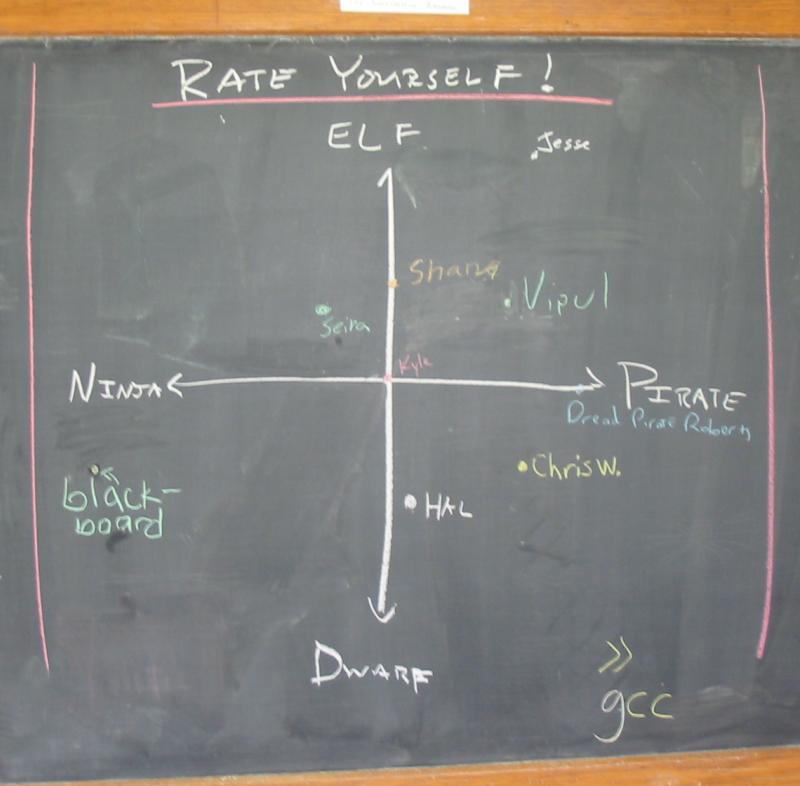 RATE YOURSELF!
ELF
Jesse
Shane
Vipul
Seira
Kyle
NINJA
PIRATE
Dread Pirate Roberts
Chris W.
black-
board
HAL
DWARF
>>
gcc